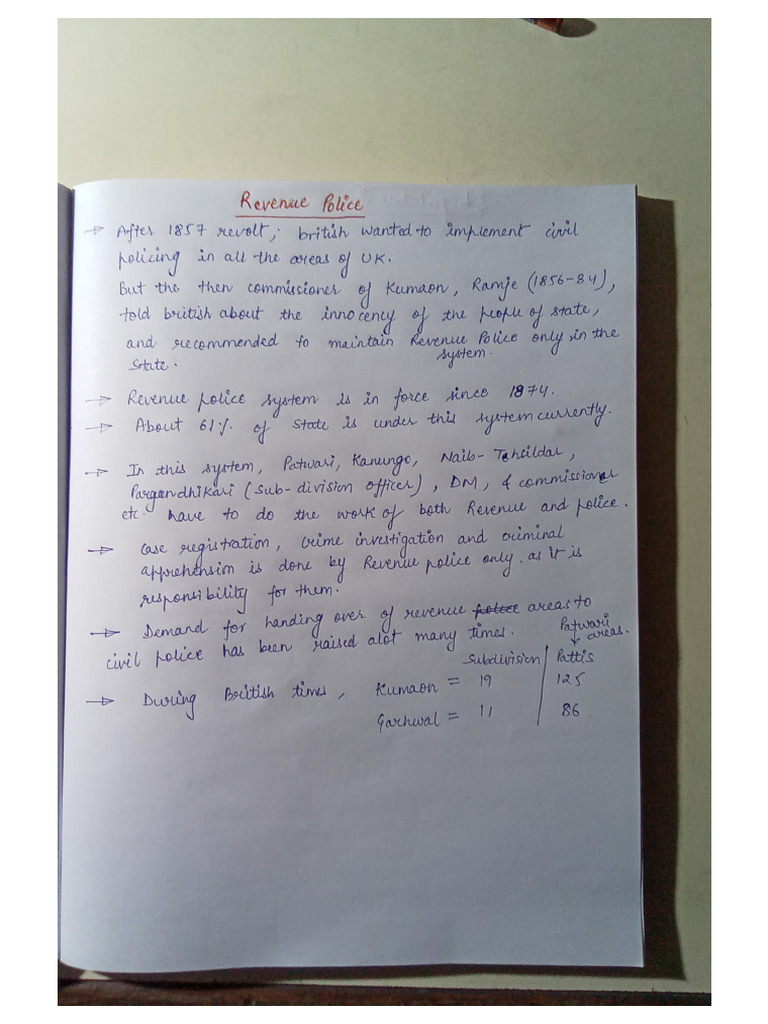 Revenue Police
→ After 1857 revolt, british wanted to implement civil
policing in all the areas of UK.
But the then commissioner of Kumaon, Ramje (1856-84),
told british about the innocency of the people of state,
and recommended to maintain Revenue Police only in the
system.
state.
→ Revenue police system is in force since 1874.
→ About 61% of state is under this system currently.
→ In this system, Patwari, Kanungo, Naib-Tehsildar,
Pargandhikari (sub-division officer), DM, & commissioner
etc. have to do the work of both Revenue and police.
→ Case registration, crime investigation and criminal
apprehension is done by Revenue police only. as it is
responsibility for them.
→ Demand for handing over of revenue police areas to
civil police has been raised alot many times.
Patwari
areas.
Subdivision | Pattis
→ During British times, Kumaon = 19 | 125
Garhwal = 11 | 86.